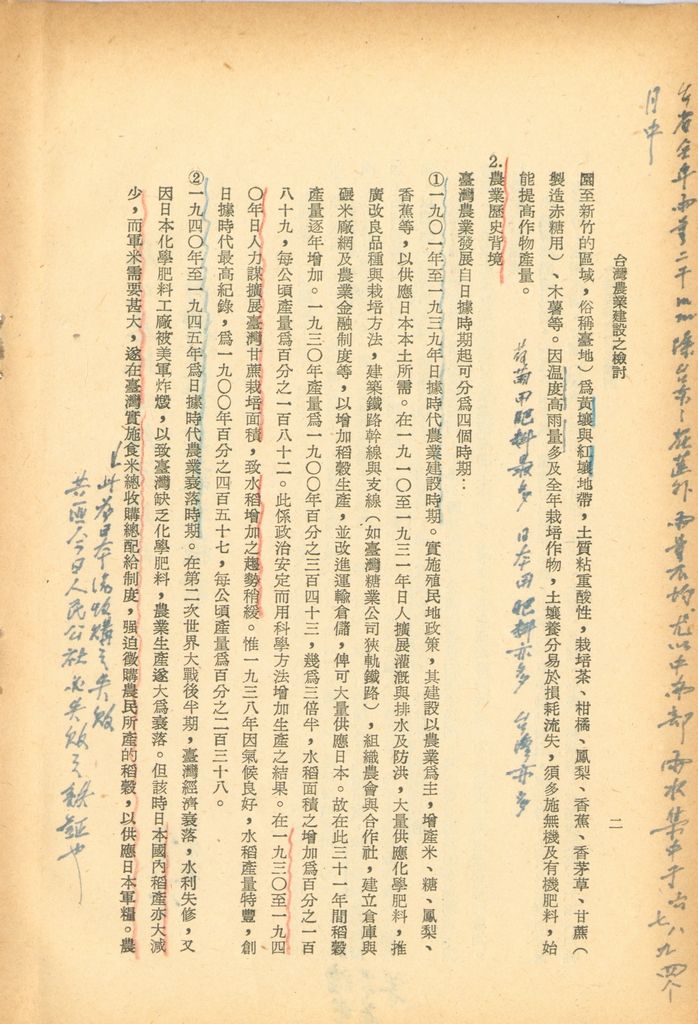 台省全年雨量二千
月中
台灣農業建設之檢討
二
園至新竹的區域，俗稱臺地）爲黃壤與紅壤地帶，土質粘重酸性，栽培茶、柑橘、鳳梨、香蕉、香茅草、甘蔗（
製造赤糖用）、木薯等。因温度高雨量多及全年栽培作物，土壤養分易於損耗流失，須多施無機及有機肥料，始
能提高作物產量。
用肥料最多 日本用肥料亦多 台灣亦多
2.農業歷史背境
臺灣農業發展自日據時期起可分爲四個時期：
①一九〇一年至一九三九年日據時代農業建設時期。實施殖民地政策，其建設以農業爲主，增產米、糖、鳳梨、
香蕉等，以供應日本本土所需。在一九一〇至一九三一年日人擴展灌漑與排水及防洪，大量供應化學肥料，推
廣改良品種與栽培方法，建築鐵路幹線與支線（如臺灣糖業公司狹軌鐵路），組織農會與合作社，建立倉庫與
碾米廠網及農業金融制度等，以增加稻穀生產，並改進運輸倉儲，俾可大量供應日本。故在此三十一年間稻穀
產量逐年增加。一九三〇年產量爲一九〇〇年百分之三百四十三，幾爲三倍半，水稻面積之增加爲百分之一百
八十九，每公頃產量爲百分之一百八十二。此係政治安定而用科學方法增加生產之結果。在一九三〇至一九四
〇年日人力謀擴展臺灣甘蔗栽培面積，致水稻增加之趨勢稍緩。惟一九三八年因氣候良好，水稻產量特豐，創
日據時代最高紀錄，爲一九〇〇年百分之四百五十七，每公頃產量爲百分之二百三十八。
②一九四〇年至一九四五年爲日據時代農業衰落時期。在第二次世界大戰後半期，臺灣經濟衰落，水利失修，又
因日本化學肥料工廠被美軍炸燬，以致臺灣缺乏化學肥料，農業生產遂大爲衰落。但該時日本國內稻產亦大減
少，而軍米需要甚大，遂在臺灣實施食米總收購總配給制度，强迫徵購農民所產的稻穀，以供應日本軍糧。農
此爲日本收購之失敗
共匪今日人民公社必失敗之鉄証也